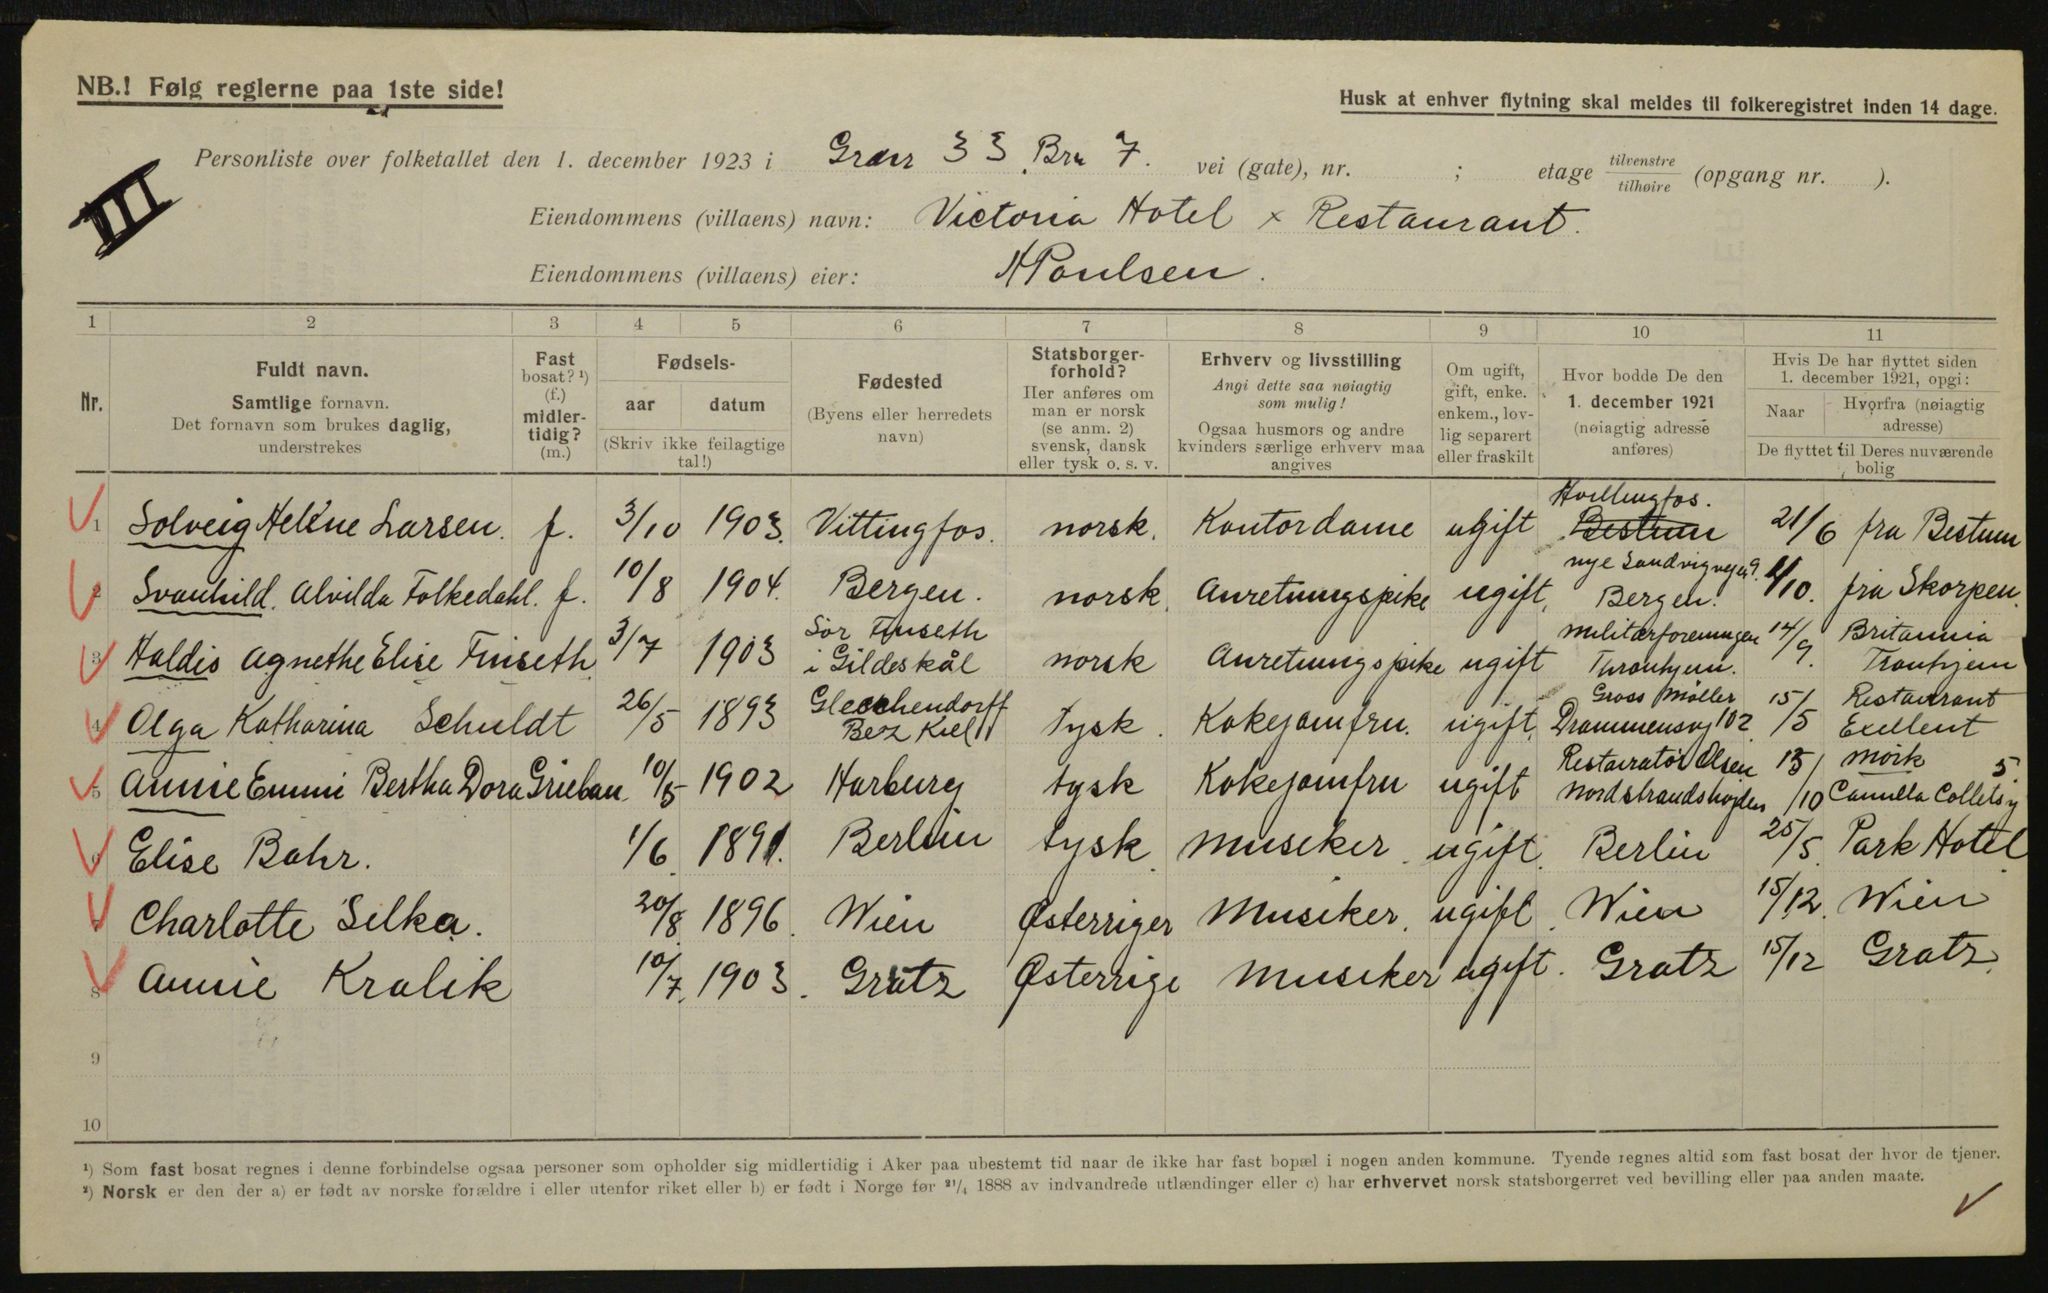 NB.! Følg reglerne paa 1ste side!
Husk at enhver flytning skal meldes til folkeregistret inden 14 dage.
III
Personliste over folketallet den 1. december 1923 i 33 Br 7. vei (gate), nr. ; etage tilvenstre/tilhøire (opgang nr. ).
Eiendommens (villaens) navn: Victoria Hotel x Restaurant.
Eiendommens (villaens) eier: Poulsen.
1 2 3 4 5 6 7 8 9 10 11
Nr.
Fuldt navn.
Samtlige fornavn.
Det fornavn som brukes daglig,
understrekes
Fast
bosat? ¹)
(f.)
midler-
tidig?
(m.)
Fødsels-
aar datum
(Skriv ikke feilagtige
tal!)
Fødested
(Byens eller herredets
navn)
Statsborger-
forhold?
Her anføres om
man er norsk
(se anm. 2)
svensk, dansk
eller tysk o. s. v.
Erhverv og livsstilling
Angi dette saa nøiagtig
som mulig!
Ogsaa husmors og andre
kvinders særlige erhverv maa
angives
Om ugift,
gift, enke.
enkem., lov-
lig separert
eller fraskilt
Hvor bodde De den
1. december 1921
(nøiagtig adresse
anføres)
Hvis De har flyttet siden
1. december 1921, opgi:
Naar Hvorfra (nøiagtig
adresse)
De flyttet til Deres nuværende
bolig
1 Solveig Helene Larsen. f. 3/10 1903. Vittingfos. norsk. Kontordame ugift Hvillingfos. Bestum 21/6 fra Bestum
2 Svanhild. Alvilda Folkedahl. f. 10/8 1904. Bergen. norsk. Anretningspike ugift, nye Sandvigveien 9. Bergen. /10. fra Skorpen.
3 Haldis Agnethe Elise Finseth 3/7 1903 Sør Finseth i Gildeskål norsk Anretningspike ugift Militærforeningen Tronhjem. 14/9. Britannia Tronhjem
4 Olga Katharina Schuldt 26/5 1893 Glecchendorff Bez Kiel tysk. Kokejomfru. ugift. Gross Møller Drammensvj 102 15/5 Restaurant Exellent
5 Annie Emmi Bertha Dora Grieban 10/5 1902 Harburg tysk Kokejomfru ugift Restauratør Olsen Nordstrandshøiden 15/10 Mørk Camilla Colletsv 5.
6 Elise Bahr. 1/6 1891. Berlin tysk. Musiker. ugift. Berlin 25/5. Park Hotel
7 Charlotte Selka. 20/8 1896. Wien Østerriger Musiker. ugift. Wien 15/12. Wien
8 Annie Kralik 10/7. 1903. Gratz Østerrige Musiker ugift. Gratz 15/12 Gratz.
9
10
¹) Som fast bosat regnes i denne forbindelse ogsaa personer som opholder sig midlertidig i Aker paa ubestemt tid naar de ikke har fast bopæl i nogen anden kommune. Tyende regnes altid som fast bosat der hvor de tjener.
²) Norsk er den der a) er født av norske forældre i eller utenfor riket eller b) er født i Norge før ²¹/₄ 1888 av indvandrede utlændinger eller c) har erhvervet norsk statsborgerret ved bevilling eller paa anden maate.